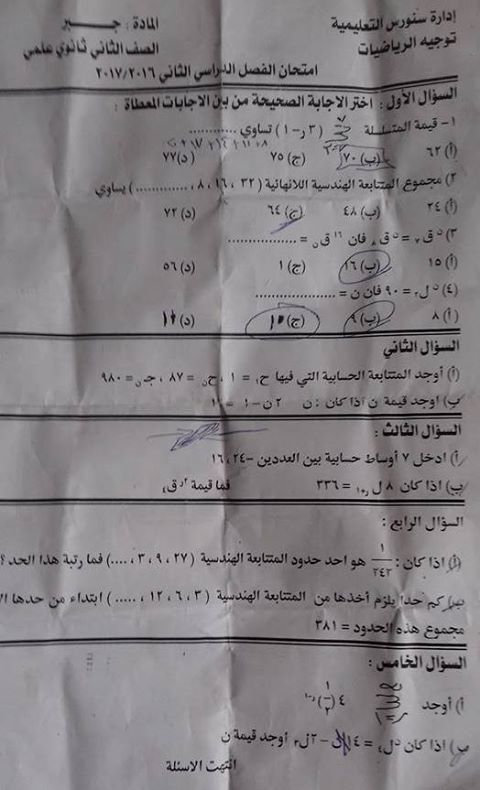 إدارة سنورس التعليمية
توجيه الرياضيات
المادة : جبر
الصف الثاني ثانوي علمي
امتحان الفصل الدراسي الثاني ٢٠١٧/٢٠١٦
السؤال الأول : اختر الاجابة الصحيحة من بين الاجابات المعطاة :
١- قيمة المتسلسلة (٣ر-١) تساوي ............
(أ) ٦٢ (ب) ٧٠ (ج) ٧٥ (د) ٧٧
٢) مجموع المتتابعة الهندسية اللانهائية (٣٢ ، ١٦ ، ٨ ، ............) يساوي
(أ) ٢٤ (ب) ٤٨ (ج) ٦٤ (د) ٧٢
٣) = فان =
(أ) ١٥ (ب) ١٦ (ج) ١ (د) ٥٦
(٤) = ٩٠ فان ن = ..................
(أ) ٨ (ب) ٩ (ج) ١٠ (د)
السؤال الثاني
(أ) أوجد المتتابعة الحسابية التي فيها = ١ ، = ٨٧ ، = ٩٨٠
ب) اوجد قيمة ن اذا كان :
السؤال الثالث :
أ) ادخل ٧ أوساط حسابية بين العددين -٢٤ ، ١٦
ب) اذا كان = ٣٣٦ فما قيمة
السؤال الرابع :
(أ) اذا كان : ١/٢٤٣ هو احد حدود المتتابعة الهندسية (٢٧ ، ٩ ، ٣ ، ....) فما رتبة هذا الحد ؟
كم حدا يلزم أخذها من المتتابعة الهندسية (٣ ، ٦ ، ١٢ ، .....) ابتداء من حدها
مجموع هذه الحدود = ٣٨١
السؤال الخامس :
أ) أوجد
ب) اذا كان أوجد قيمة ن
انتهت الاسئلة